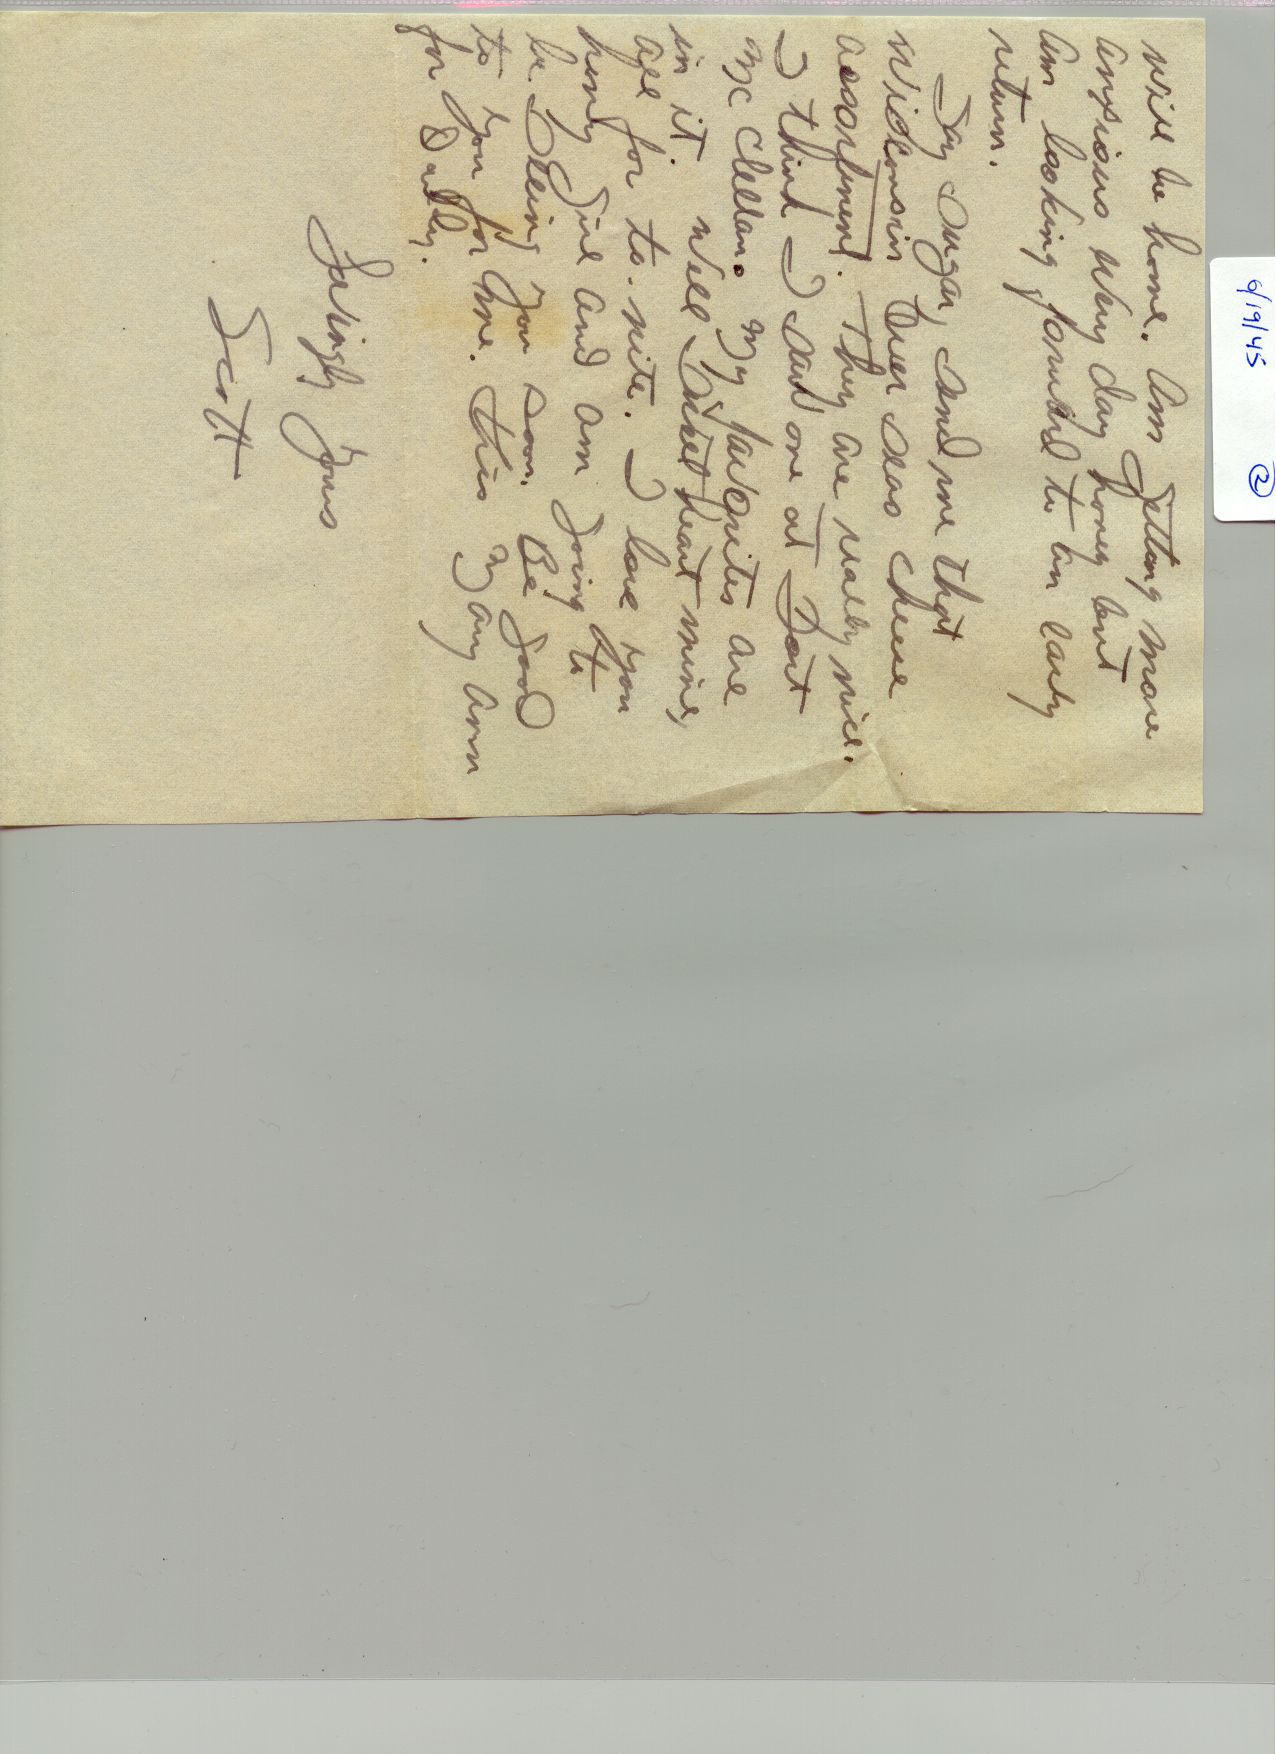 6/19/45 2
will be home. Am getting more
anxious every day honey but
am looking forward to an early
return.
Say sugar, send me that
Wisconsin Over Seas cheese
assortment. They are really nice.
I think I saw one at Fort
McClellan. My favorites are
in it. Well Sweetheart mine,
all for to-nite. I love you
honey Girl and am going to
be seeing you soon. Be good
to you for me. Kiss Mary Ann
for Daddy.
Lovingly Yours
Scott